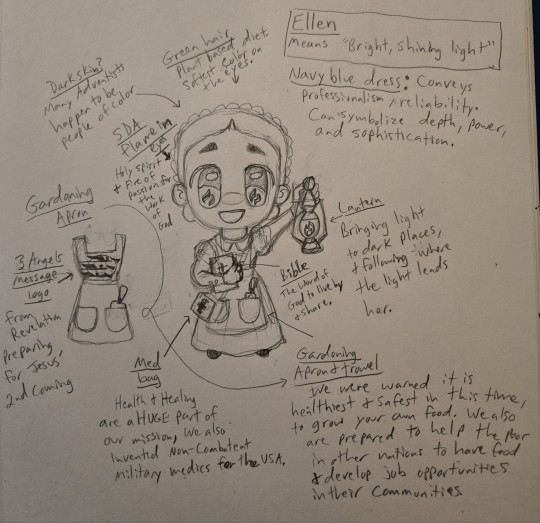 Ellen
Means "Bright, shining light"
Navy blue dress: Conveys
Professionalism/reliability.
Can symbolize depth, power,
and sophistication.
Green hair
Plant based diet.
Safest color on
the eyes.
Dark skin?
Many Adventists
happen to be
people of color
SDA
Flame in
eyes
Holy Spirit
& Fire of
Passion for
the work
of
God
Gardoning
Apron
3 Angels
Message
logo
from
Revelation
preparing
for Jesus'
2nd Coming
Lantern
Bringing light
to dark places,
& following where
the light leads
her.
Bible
The Word of
God to live by
& share.
Med
bag
Health & Healing
are a HUGE part of
our mission, we also
invented Non-Combatent
Military medics for the USA.
Gardoning
Apron & trowel
We were warned it is
healthiest & safest in this time,
to grow your own food. We also
are prepared to help the poor
in other nations to have food
& develop job opportunities
in their communities